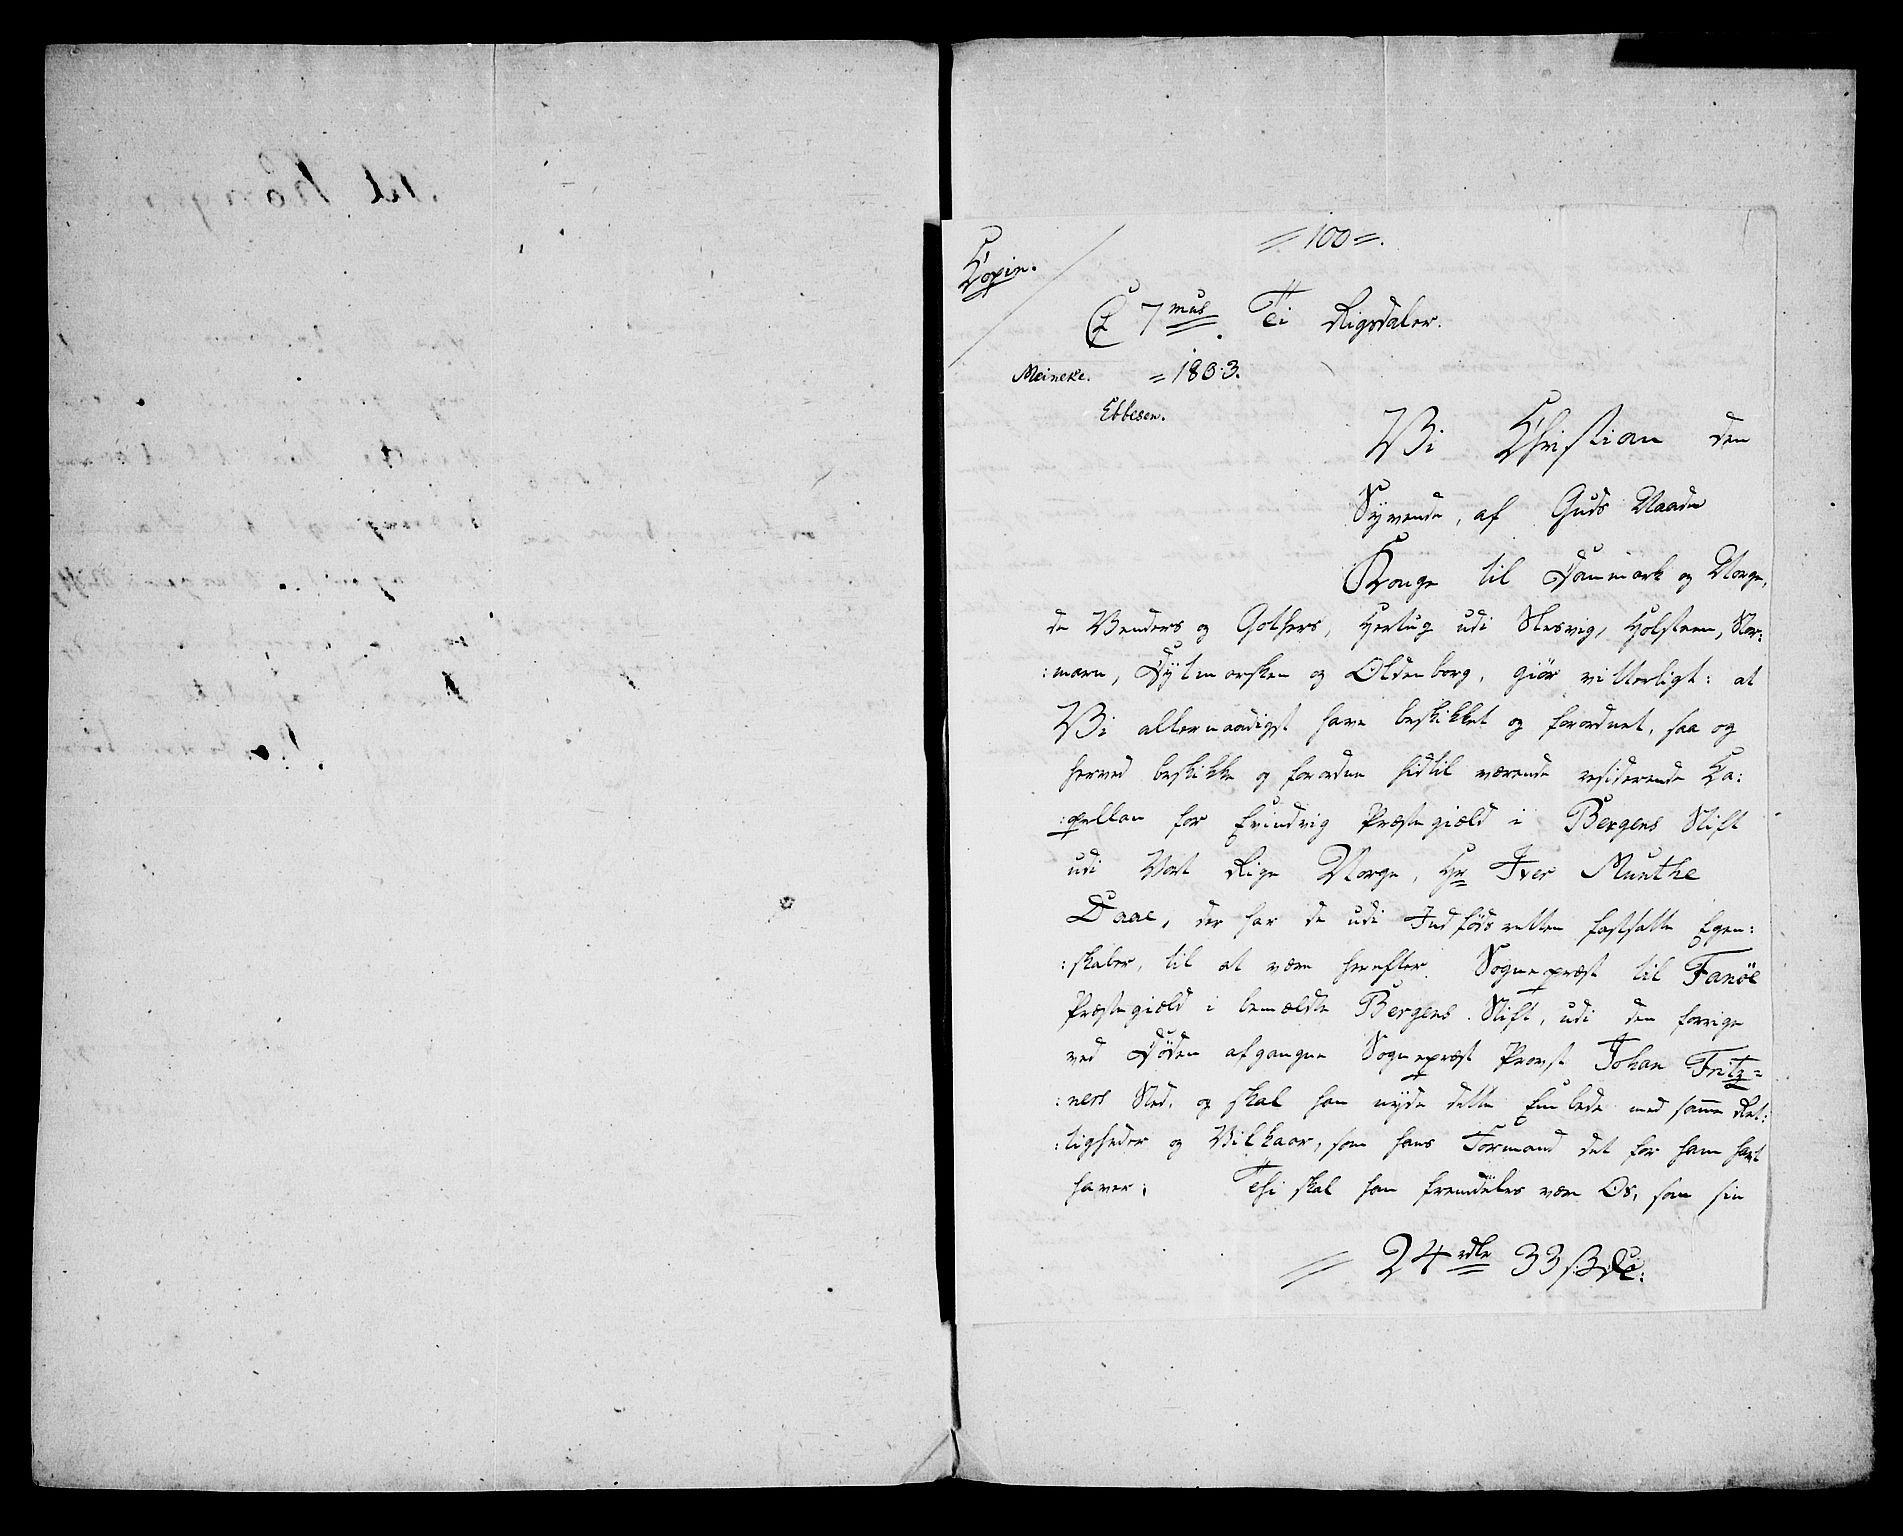 = 100 =.
Copie.
C 7 7mus. Ti Rigsdaler.
= 1803.
Meineke.
Ebbesen.
Vi Christian den
Syvende, af Guds Naade
Konge til Danmark og Norge,
de Venders og Gothers, Hertug udi Slesvig, Holsteen, Stor:
:marn, Dytmarsken og Oldenborg, giør vitterligt: at
Vi allernaadigst have beskikket og forordnet, saa og
herved beskikke og forordne hidtil værende residerende Ca:
:pellan for Evindvig Præstegield i Bergens Stift
udi Vort Rige Norge, Hr Iver Munthe
Daae, der har de udi Indfødsretten fastsatte Egen:
:skaber, til at være herefter Sognepræst til Fanöe
Præstegiæld i bemældte Bergens Stift, udi den forrige
ved Døden afgangne Sognepræst Provst Johan Fritz=
:ners Sted, og skal han nyde dette Embede med samme Ret:
:tigheder og Vilkaar, som hans Formand det for ham havt
haver; Thi skal han fremdeles være Os, som sin
= 24 rdlr 33 ß DC: